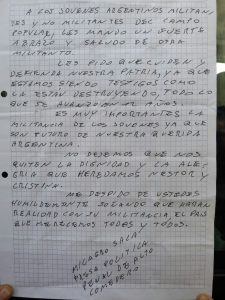 A LOS JOVENES ARGENTINOS MILITAN,
TES Y NO MILITANTES DEL CAMPO
POPULAR, LES MANDO UN FUERTE
ABRAZO Y SALUDO DE OTRA
MILITANTE.
LES PIDO QUE CUIDEN Y
DEFIENDA NUESTRA PATRIA, YA QUE
ESTAMOS SIENDO TESTIGOS COMO
LA ESTAN DESTRUYENDO, TODO LO
QUE SE AVANZO EN 12 AÑOS.
ES MUY IMPORTANTES LA
MILITANCIA DE LOS JOVENES YA QUE
SON FUTURO DE NUESTRA QUERIDA
ARGENTINA.
NO DEJEMOS QUE NOS
QUITEN LA DIGNIDAD Y LA ALE,
GRIA QUE HEREDAMOS NESTOR Y
CRISTINA.
ME DESPIDO DE USTEDES
HUMILDEMENTE QUE HARAN
REALIDAD CON SU MILITANCIA, EL PAIS
QUE MERECEMOS TODES Y TODOS.
MILAGRO SALA
PRESA POLITICA
PENAL DE ALTO
COMEDERO